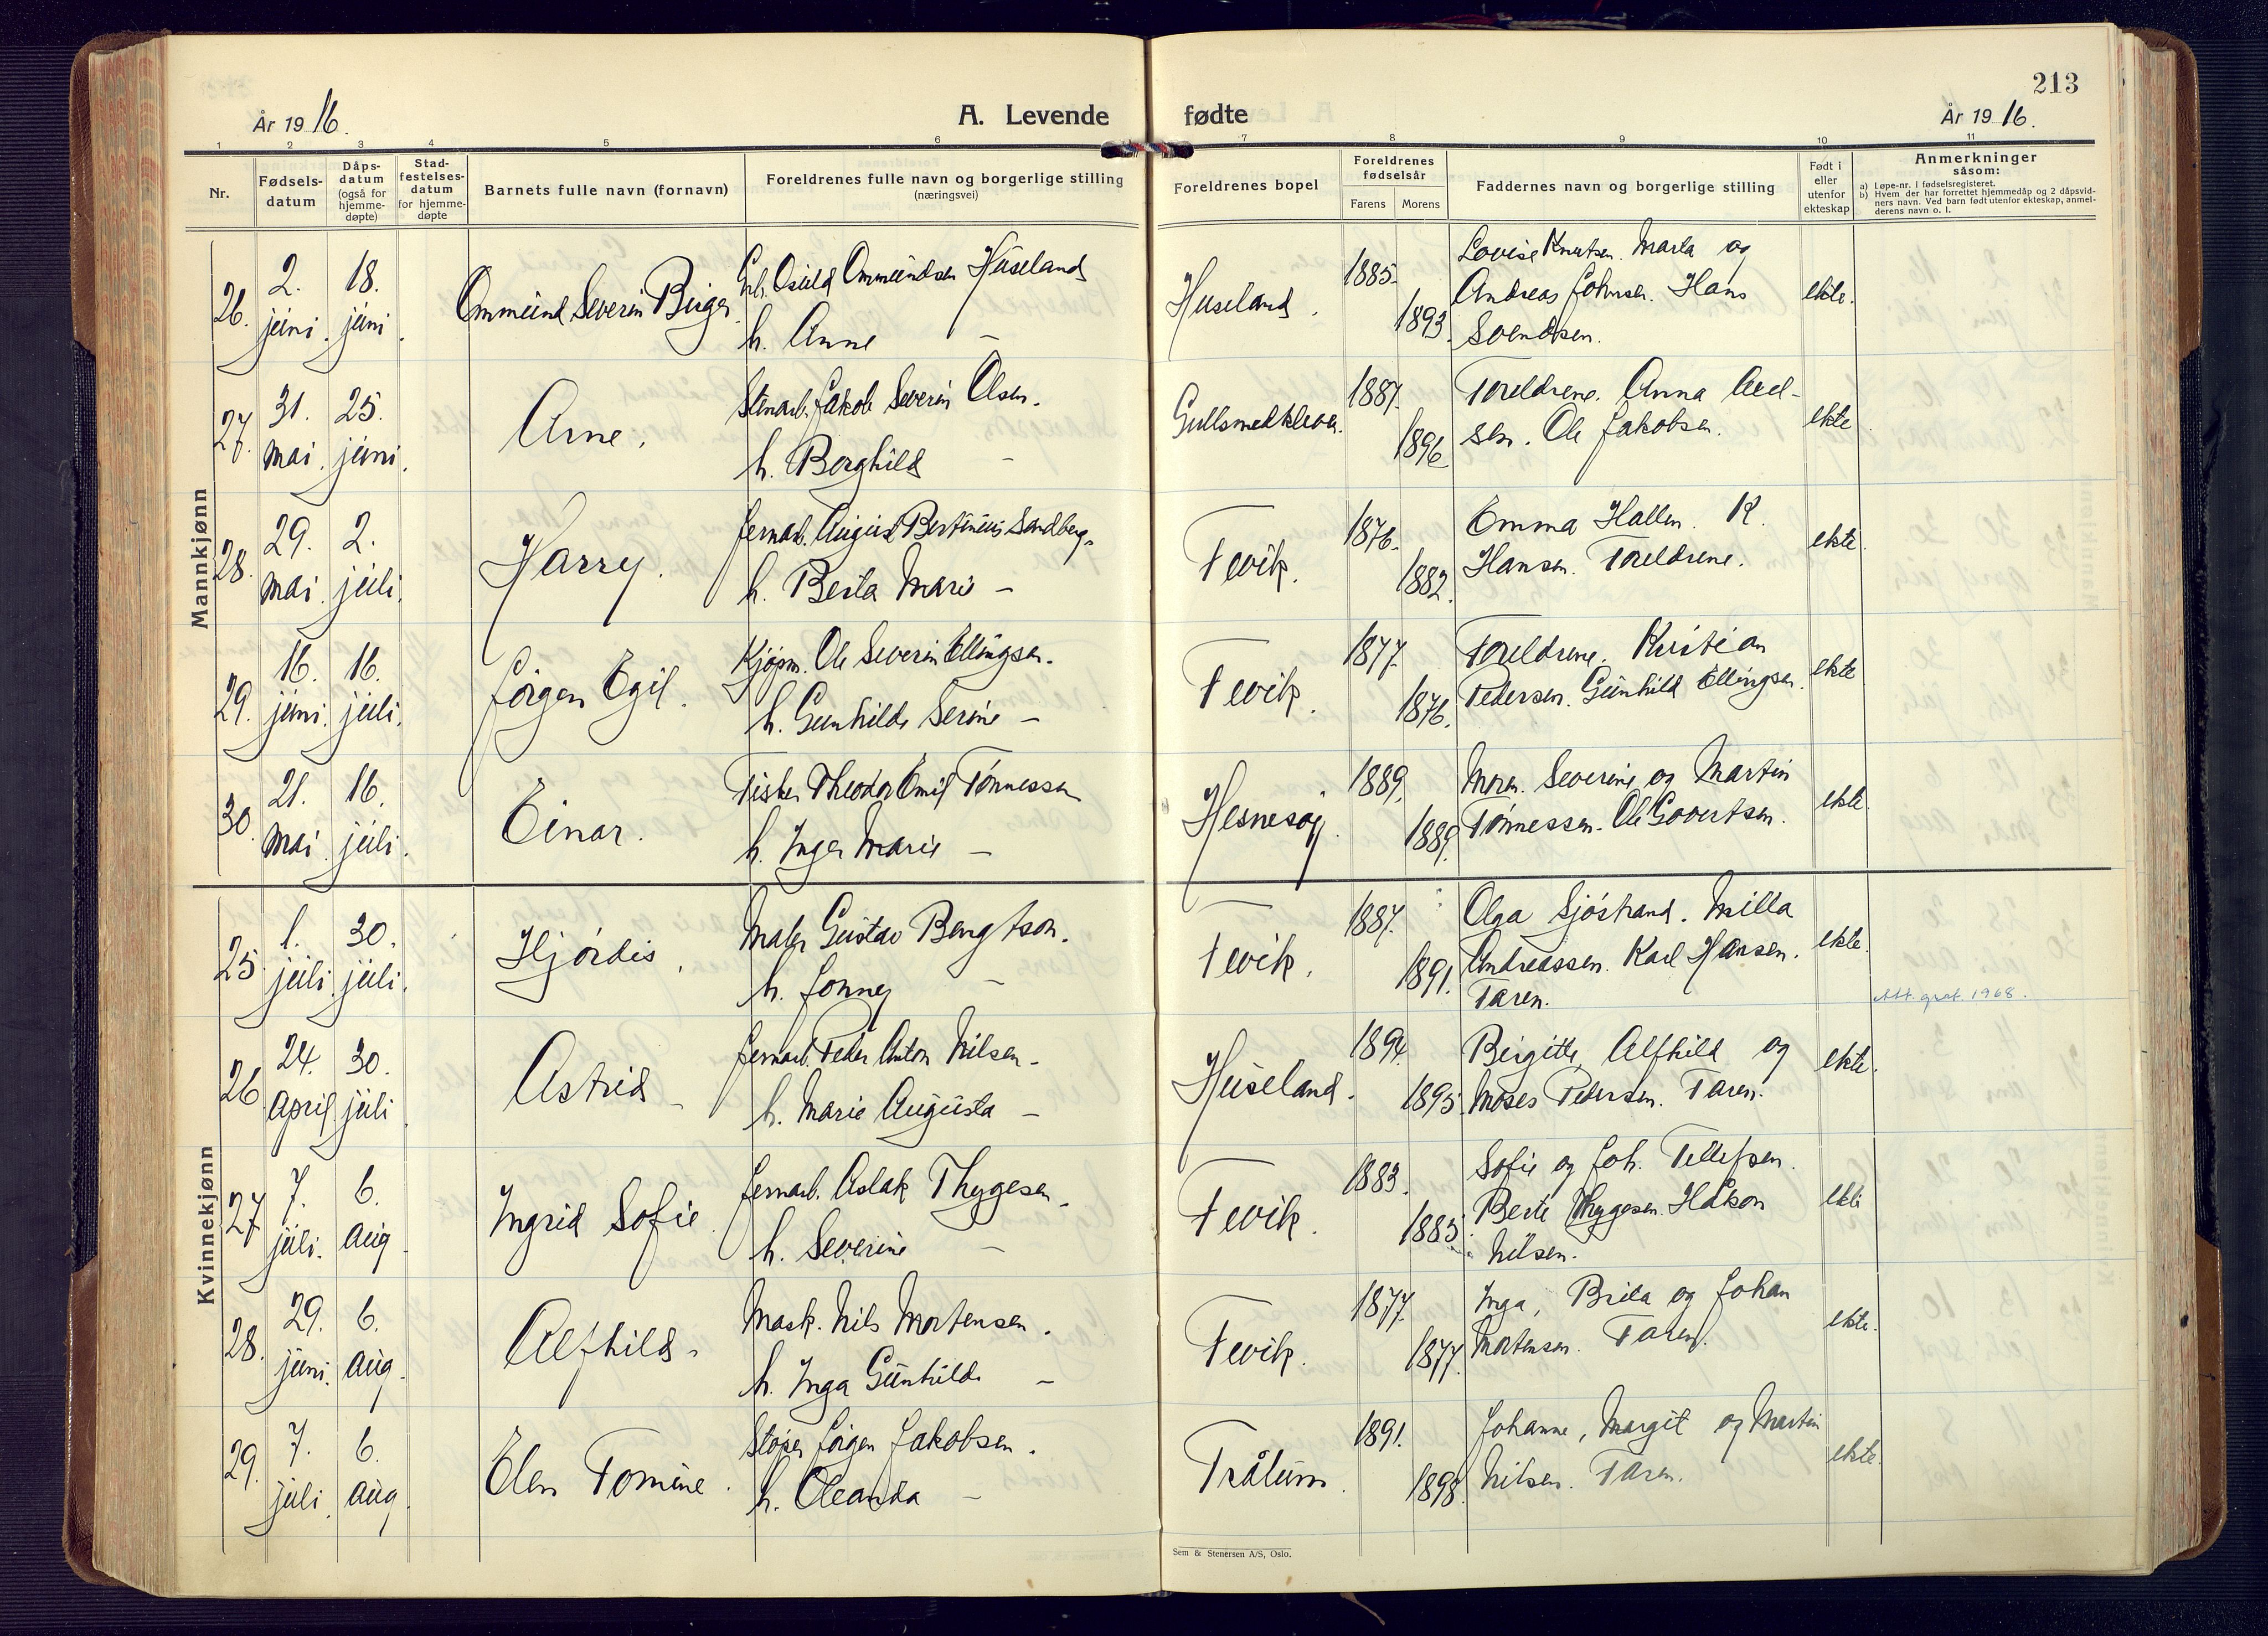 213
År 1916.
A. Levende fødte
År 1916.
1 2 3 4 5 6 7 8 9 10 11
Nr.
Fødsels-
datum
Dåps-
datum
(også for
hjemme-
døpte)
Stad-
festelses-
datum
for hjemme-
døpte
Barnets fulle navn (fornavn)
Foreldrenes fulle navn og borgerlige stilling
(næringsvei)
Foreldrenes bopel
Foreldrenes
fødselsår
Farens Morens
Faddernes navn og borgerlige stilling
Født i
eller
utenfor
ekteskap
Anmerkninger
såsom:
a) Løpe-nr. i fødselsregisteret.
b) Hvem der har forrettet hjemmedåp og 2 dåpsvid-
ners navn. Ved barn født utenfor ekteskap, anmel-
derens navn o. l.
Mannkjønn
26.
2.
juni.
18.
juni.
Ommund Severin Birger.
Osuld Ommundsen Huseland
h. Anne –
Huseland.
1885.
1893.
Lovise Knutsen. Marta og
Andreas Johnsen. Hans
Svendsen.
ekte.
27.
31.
mai.
25.
juni.
Arne.
Stenarb. Jakob Severin Olsen.
h. Borghild –
Gullsmedkleva.
1887.
1896
Foreldrene. Anna Axel-
sen. Ole Jakobsen.
ekte.
28.
29.
mai.
2.
juli.
Harry.
Jernarb. August Bertinius Sandberg.
h. Berta Marie –
Fevik.
1876.
1882.
Emma Hallen. K.
Hansen. Foreldrene.
ekte.
29.
16.
juni.
16.
juli.
Jörgen Egil.
Kjøpm. Ole Severin Ellingsen.
h. Gunhilde Serine –
Fevik.
1877.
1876.
Foreldrene. Kristian
Pedersen. Gunhild Ellingsen.
ekte
30.
21.
mai.
16.
juli.
Einar.
Fisker Theodor Emil Tønnessen
h. Inger Marie –
Hesnesøy.
1889.
1889.
Moren. Severine og Martin
Tønnessen. Ole Govertsen.
ekte
Kvinnekjønn
25
1.
juli.
30.
juli.
Hjørdis.
Maler Gustav Bengtson.
h. Jonney –
Fevik.
1887.
1891.
Olga Sjöstrand. Milla
Andreassen. Karl Hansen.
Faren.
ekte.
Att. gref. 1968.
26
24.
April.
30.
juli.
Astrid
Jernarb. Peder Anton Nilsen –
h. Marie Augusta –
Huseland.
1894.
1895.
Birgitte, Alfhild og
Moses Pedersen. Faren.
ekte.
27
7.
juli.
6.
aug.
Ingrid Sofie.
Jernarb. Aslak Thygesen.
h. Severine –
Fevik.
1883.
1885.
Sofie og Joh. Tellefsen.
Berte Thygesen. Håkon
Nilsen.
ekte
28.
29.
juni.
6.
aug.
Alfhild.
Mask. Nils Mortensen.
h. Inga Gunhilde –
Fevik.
1877.
1877.
Inga, Brita og Johan
Mortensen. Faren.
ekte.
29.
7.
juli.
6.
aug.
Elen Tomine.
Støper Jörgen Jakobsen.
h. Oleanda –
Trålum.
1891.
1898.
Johanne, Margit og Martin
Nilsen. Faren.
ekte.
Sem & Stenersen A/S, Oslo.